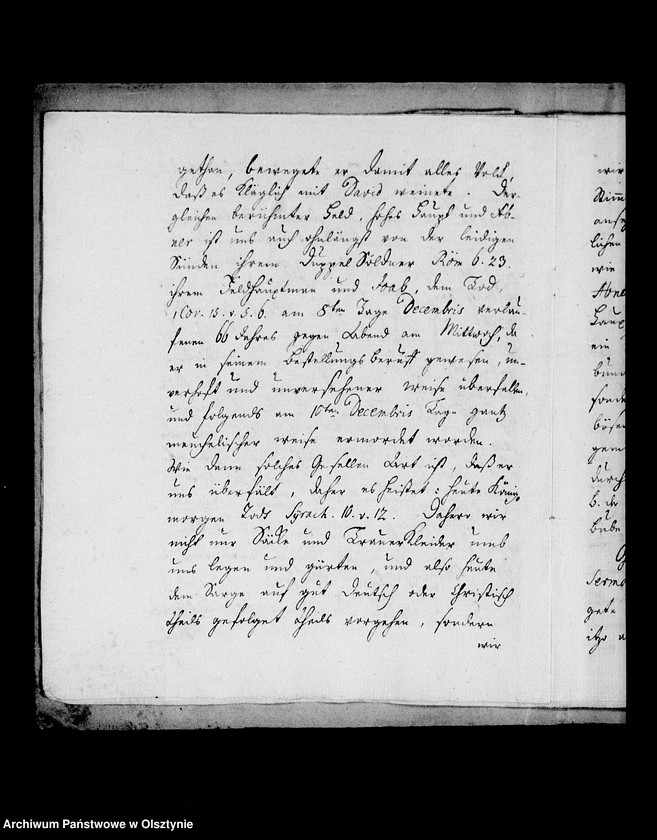 gethan, bewegete er damit alles Volck,
daß es kläglich mit David weinete. Der-
gleichen berühmter Held, hohes Haupt und Ab-
ner ist uns auch ohnlängst von der leidigen
Sünden ihrem Duppel Söldner Röm 6. 23.
ihrem Feldhauptman und Joab, dem Tod,
1 Cor. 15. v. 5. 6. am 8ten Tage Decembris verlau-
fenen 66 Jahres gegen Abend am Mittwoch, da
er in seinem Bestellungs beruff gewesen, un-
verhofft und unversehener weise überfallen,
und folgends am 10ten Decembris Tage gantz
meuchelischer weise ermordet worden.
Wie denn solches Gesellen Art ist, daß er
uns überfält, daher es heißet: heute König
morgen Todt Syrach. 10. v. 12. Daherr wir
nicht nur Säcke und TrauerKleider umb
uns legen und gürten, und also heute
dem Sarge auf gut Deutsch oder Christisch
theils gefolget theils vorgehen, sondern
wir
wir
Stim
anse
lichen
wie
Abne
Haup
ein
bun
sond
bösen
gem
durch
d. der
Bube
Serm
gete
itzo
Archiwum Państwowe w Olsztynie